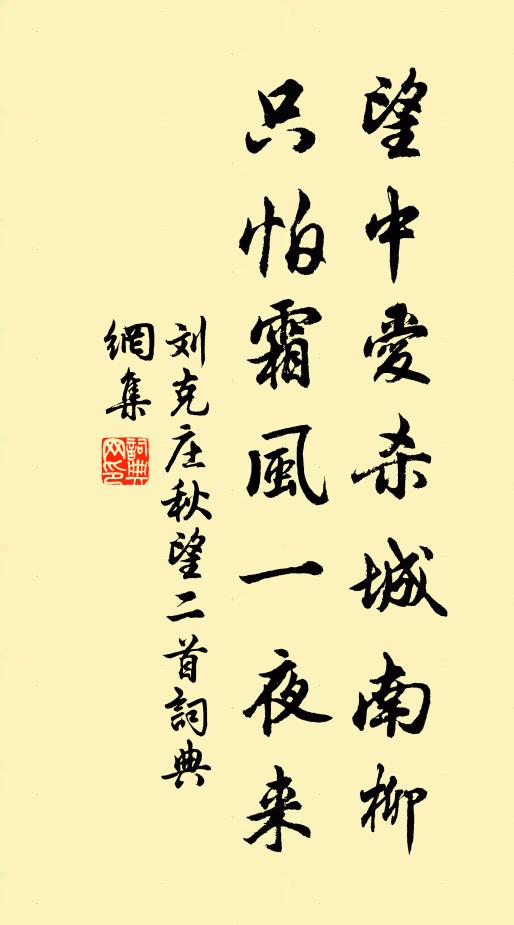 望中愛杀城南柳
只怕霜風一夜来
刘克庄秋望二首詞典
網集
詞典网印